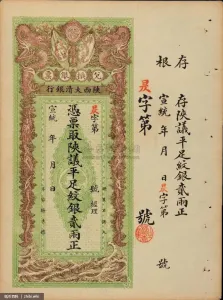 存根
存陝議平足紋銀貳兩正
宣統 年 月 日 字第 號
字第 號
兌換銀票
陝西大清銀行
字第 號 經理
憑票取陝議平足紋銀貳兩正
宣統 年 月 日